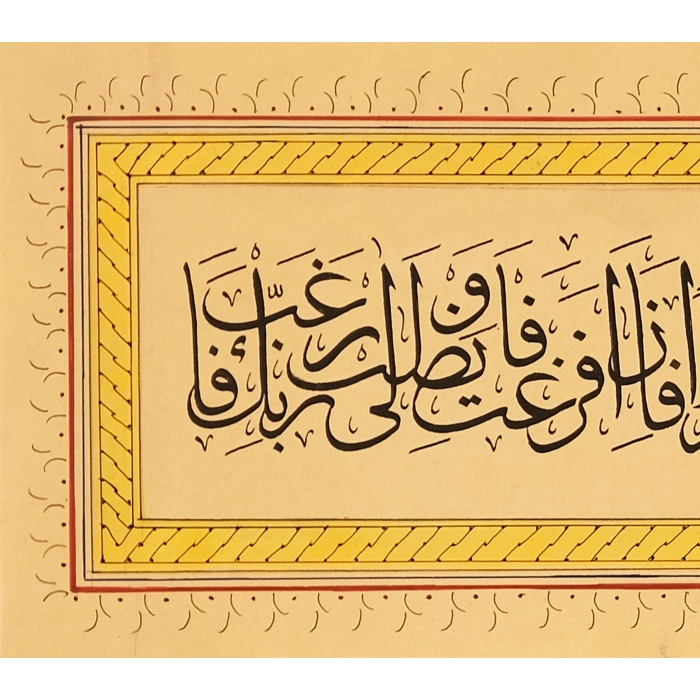 فاذا فرغت فانصب والى ربك فارغب